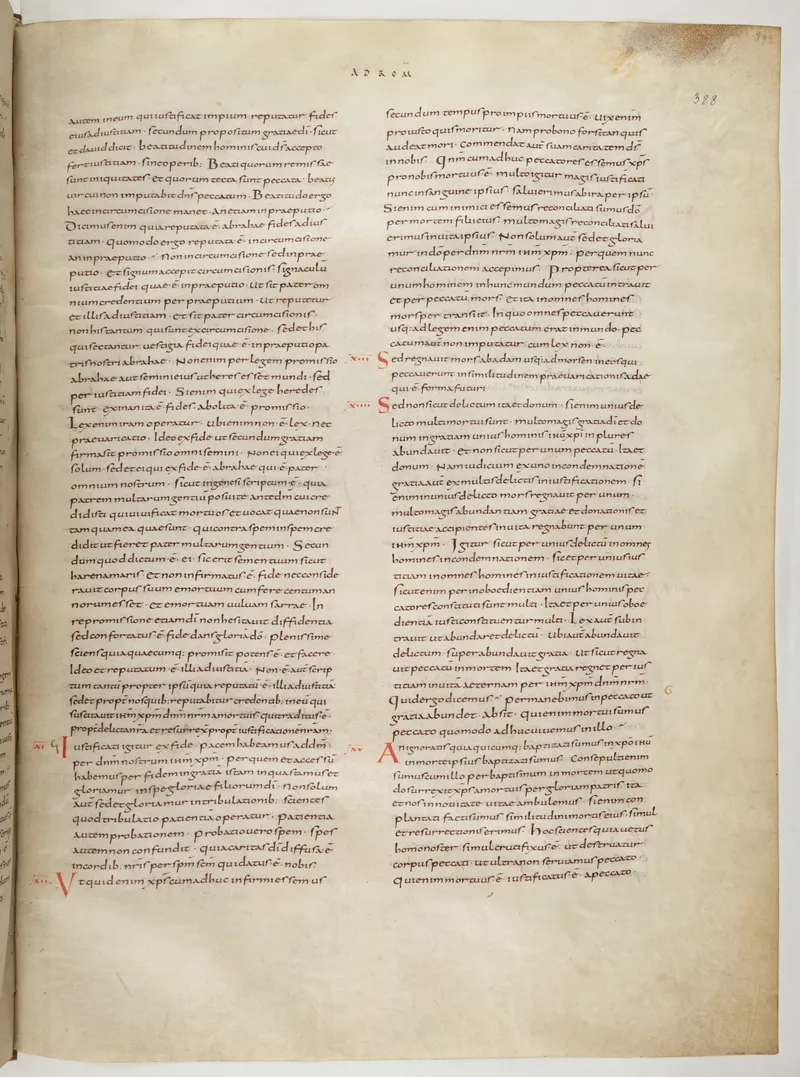 AD ROM
328
autem ineum qui iustificat impium reputatur fides
eius adiustitiam · secundum propositum gratiae di · sicut
et dauid dicit · beatitudinem hominis cui dſ accepto
fert iustitiam · sine operib; Beati quorum remissae
sunt iniquitates et quorum tecta sunt peccata · beatus
uir cui non imputabit dnſ peccatum · Beatitudo ergo
haec in circumcisione manet · An etiam in praeputio
Dicimus enim quia reputata ē abrahae fides adius
titiam · quomodo ergo reputata ē · in circumcisione
an in praeputio · Non in circumcisione sed in prae
putio · et signum accepit circumcisionis · signaculū
iustitiae fidei quae ē in praeputio · Ut sit pater om
nium credentium per praeputium · Ut reputetur
et illis adiustitiam · et sit pater circumcisionis ·
non his tantum qui sunt ex circumcisione · sed et his
qui sectantur uestigia fidei quae ē in praeputio pa
tris nostri abrahae · Non enim per legem promissio
abrahae aut semini eius ut heres esset mundi · sed
per iustitiam fidei · Si enim qui ex lege heredes
sunt · exinanita ē fides · abolita ē promissio ·
Lex enim iram operatur · ubi enim non ē lex · nec
praeuaricatio · Ideo ex fide ut secundum gratiam
firma sit promissio omni semini · Non ei qui ex lege ē
solum · sed et ei qui ex fide ē abrahae qui ē pater
omnium nostrum · sicut in genesi scriptum ē · quia
patrem multarum gentiū posui te antedm cui cre
didisti qui uiuificat mortuos et uocat quae non sunt
tamquam ea quae sunt · qui contra spem in spem cre
didit ut fieret pater multarum gentium · Secun
dum quod dictum ē · ei · sic erit semen tuum sicut
harena maris et non infirmatus ē fide nec conside
rauit corpus suum emortuum cum fere centum an
norum esset · et emortuam uuluam sarrae · In
repromissione etiam di non hesitauit diffidentia
sed confortatus ē fide dans gloriā dō · plenissime
sciens quia quaecumq; promisit potens ē et facere ·
Ideo et reputatum ē illi adiustitiā · Non ē aut scrip
tum tantū propter ipsū quia reputatū ē illi adiustitiā
sed et propt nos quib; reputabitur credentib; in eū qui
suscitauit ihm xpm dnm nrm amortuis qui traditus ē
propt delicta nra et resurrexit propt iustificationē nram ·
XI Iustificati igitur ex fide · pacem habeamus addm
per dnm nostrum ihm xpm · per quem et accessū
habemus per fidem in gratia istam in qua stamus et
gloriamur in spe gloriae filiorum di · Non solum
aut sed et gloriamur in tribulationib; scientes
quod tribulatio patientiā operatur · patientia
autem probationem · probatio uero spem · spes
autem non confundit · quia caritas di diffusa ē
in cordib; nris per spm scm qui datus ē nobis ·
XII Ut quid enim xps cum adhuc infirmi essemus
secundum tempus pro impiis mortuus ē · Vix enim
pro iusto quis moritur · Nam pro bono forsitan quis
audeat mori · Commendat aut suam caritatem ds
in nobis · Qnm cum adhuc peccatores essemus xps
pro nobis mortuus ē · multo igitur magis iustificati
nunc in sanguine ipsius · salui erimus abira per ipsū ·
Si enim cum inimici essemus reconciliati sumus dō
per mortem filii eius · multo magis reconciliati salui
erimus in uita ipsius · Non solum aut sed et gloria
mur in dō per dnm nrm ihm xpm · per quem nunc
reconciliationem accepimus · Propterea sicut per
unum hominem in hunc mundum peccatum intrauit
et per peccatū mors et ita in omnes homines
mors pertransiit · In quo omnes peccauerunt
usq; ad legem enim peccatum erat in mundo · pec
catum aut non imputatur cum lex non ē ·
XIII Sed regnauit mors ab adam usq; ad mosen in eos qui
peccauerunt in similitudinem praeuaricationis adae
qui ē forma futuri ·
XIIII Sed non sicut delictum ita et donum · si enim unius de
licto multi mortui sunt · multo magis gratia di et do
num in gratiam unius hominis ihu xpi in plures
abundauit · et non sicut per unum peccatū ita et
donum · Nam iudicium ex uno in condemnationē
gratia aut ex multis delictis in iustificationem · Si
enim in unius delicto mors regnauit per unum ·
multo magis abundantiam gratiae et donationis et
iustitiae accipientes in uita regnabunt per unum
ihm xpm · Igitur sicut per unius delictū in omnes
homines in condemnationem · sic et per unius ius
titiam in omnes homines in iustificationem uitae
sicut enim per inoboedientiam unius hominis pec
catores constituti sunt multi · Ita et per unius oboe
dientiā iusti constituentur multi · Lex aut subin
trauit ut abundaret delictū · Ubi aut abundauit
delictum · superabundauit gratia · Ut sicut regna
uit peccatū in mortem Ita et gratia regnet per ius
titiam in uitā aeternam per ihm xpm dnm nrm ·
Quid ergo dicemus · permanebimus in peccato ut
gratia abundet · Absit · qui enim mortui sumus
peccato quomodo adhuc uiuemus in illo
XV An ignoratis quia quicumq; baptizati sumus in xpo ihu
in morte ipsius baptizati sumus · Consepulti enim
sumus cum illo per baptismum in mortem ut quomo
do surrexit xps amortuis per gloriam patris ita
et nos in nouitate uitae ambulemus · si enim con
plantati facti sumus similitudini mortis eius · simul
et resurrectionis erimus · Hoc scientes quia uetus
homo noster simul crucifixus ē · ut destruatur
corpus peccati · ut ultra non seruiamus peccato ·
Qui enim mortuus ē · iustificatus ē · a peccato ·